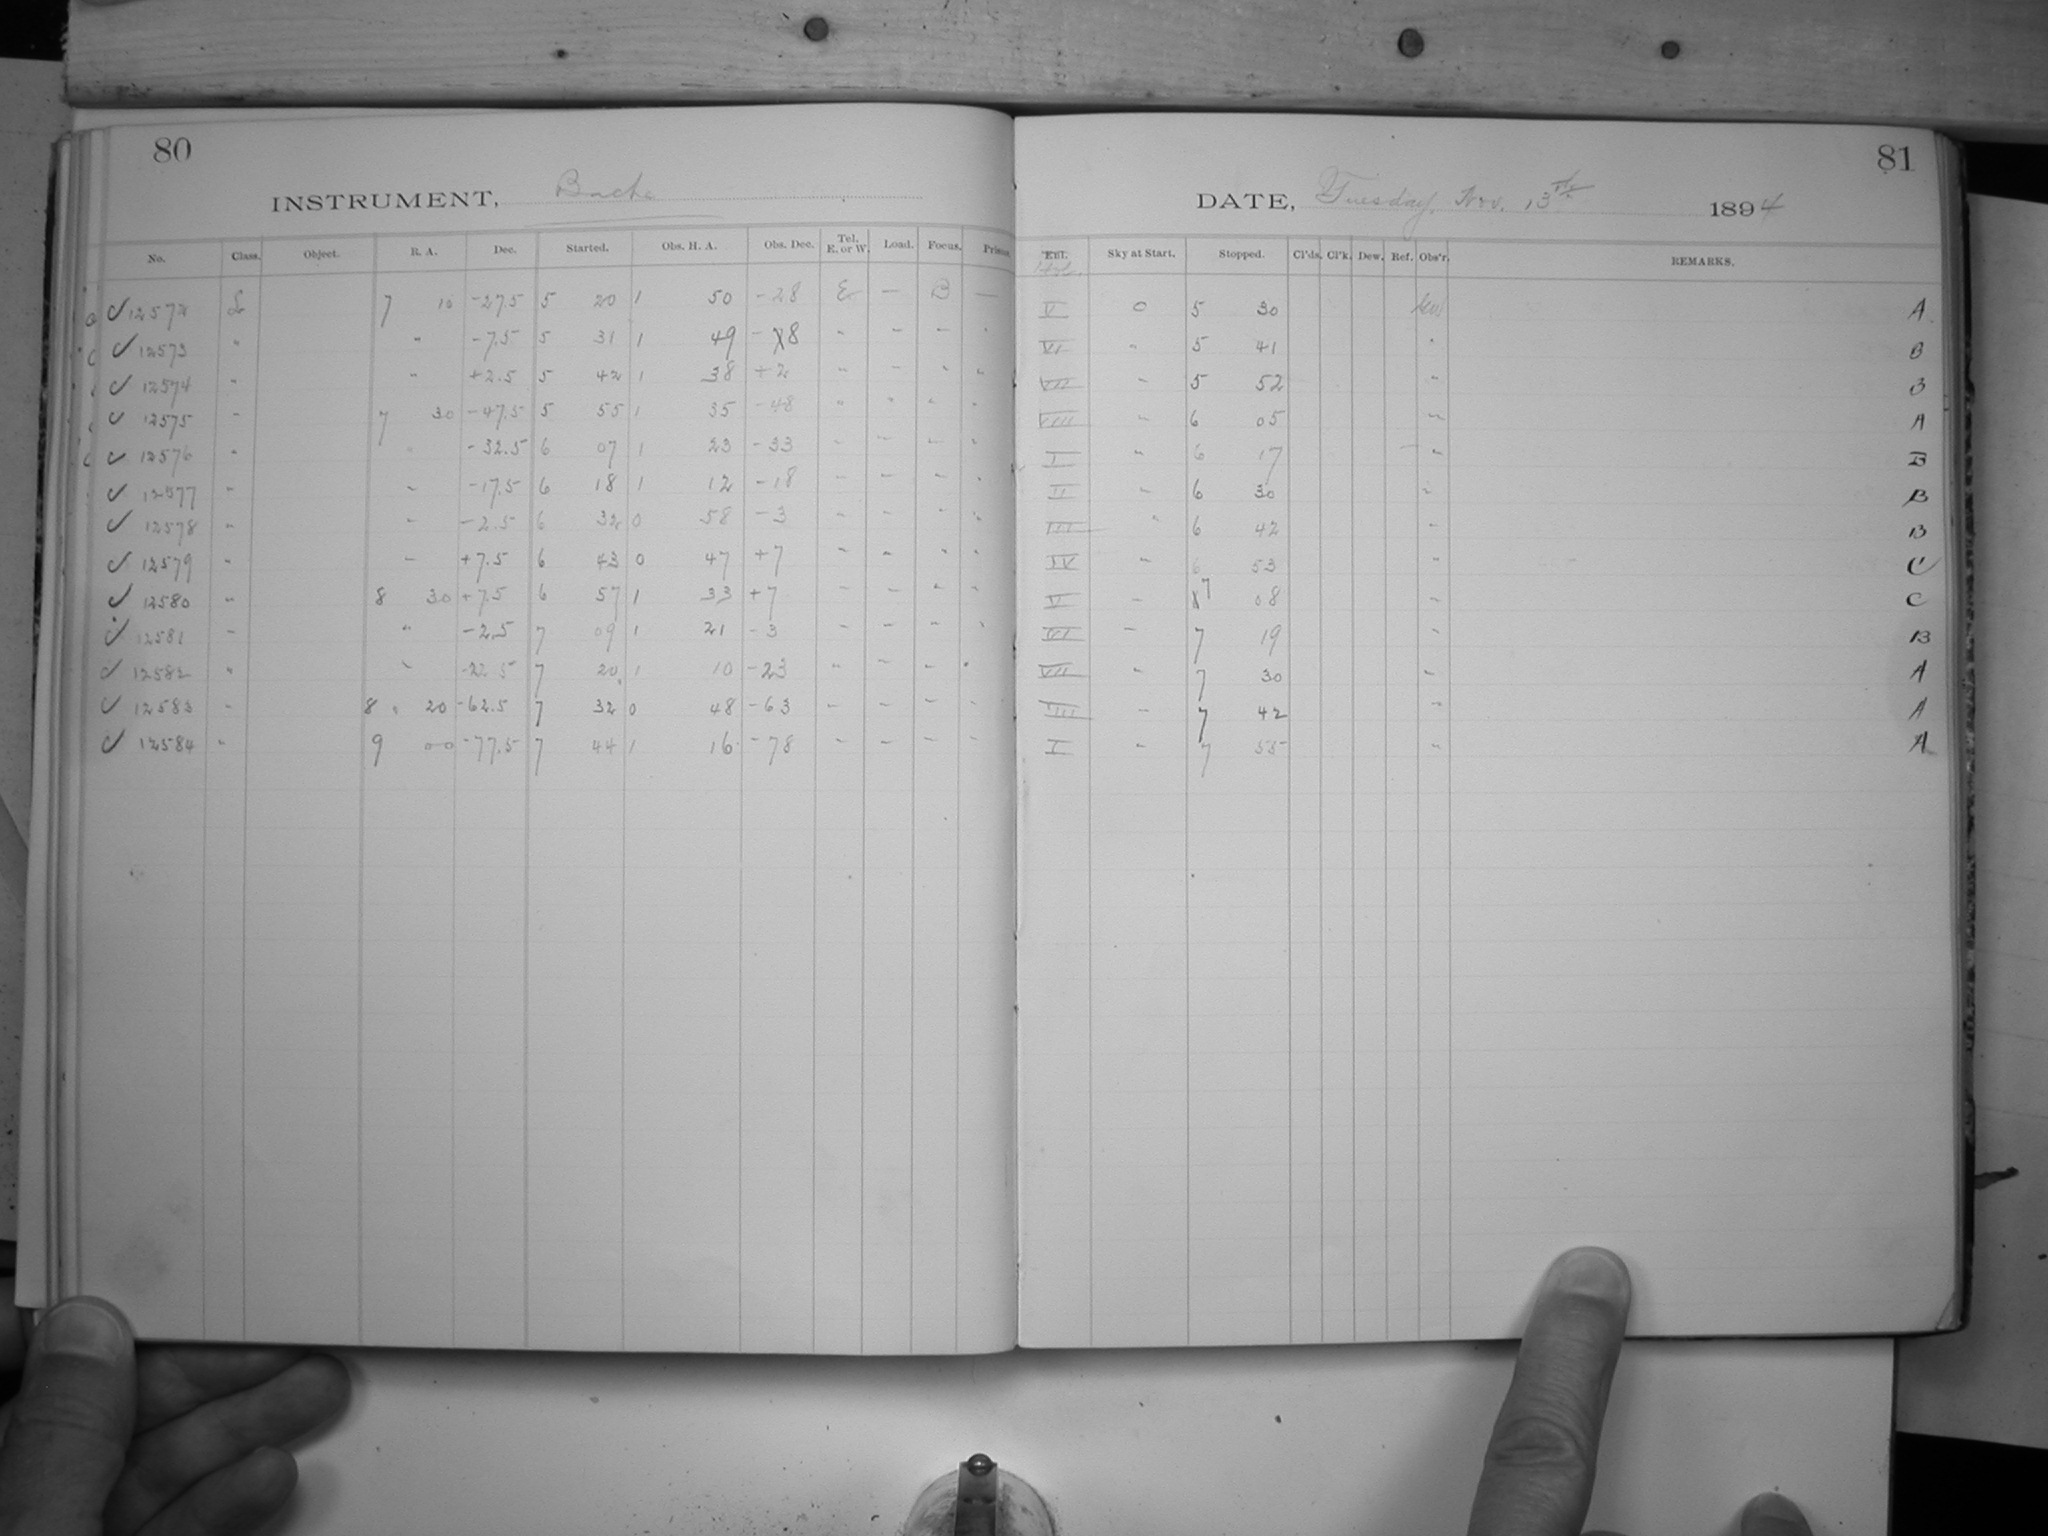 80
INSTRUMENT, Bache
No. Class. Object. R. A. Dec. Started. Obs. H. A. Obs. Dec. Tel. E. or W. Load. Focus. Prisms.
✓ 12572 L 7 10 -27.5 5 20 1 50 -28 E — B —
✓ 12573 " " -7.5 5 31 1 49 -8 " - - "
✓ 12574 " " +2.5 5 42 1 38 +2 " - " "
✓ 12575 " 7 30 -47.5 5 55 1 35 -48 " " " "
✓ 12576 " " -32.5 6 07 1 23 -33 " - - "
✓ 12577 " " -17.5 6 18 1 12 -18 - - - "
✓ 12578 " " -2.5 6 32 0 58 -3 " - " "
✓ 12579 " " +7.5 6 43 0 47 +7 " " " "
✓ 12580 " 8 30 +7.5 6 57 1 33 +7 - - " "
✓ 12581 " " -2.5 7 09 1 21 -3 - - - "
✓ 12582 " " -22.5 7 20 1 10 -23 " - - "
✓ 12583 " 8 20 -62.5 7 32 0 48 -63 - - - -
✓ 12584 " 9 00 -77.5 7 44 1 16 -78 - - - -
81
DATE, Tuesday, Nov. 13th 1894
Ext. Sky at Start. Stopped. Cl'ds. Cl'k. Dew. Ref. Obs'r. REMARKS.
V 0 5 30 A
VI " 5 41 " B
VII " 5 52 " B
VIII " 6 05 " A
I " 6 17 " B
II " 6 30 " B
III " 6 42 " B
IV " 6 53 " C
V - 7 08 " C
VI " 7 19 " B
VII " 7 30 " A
VIII - 7 42 " A
I " 7 55 " A